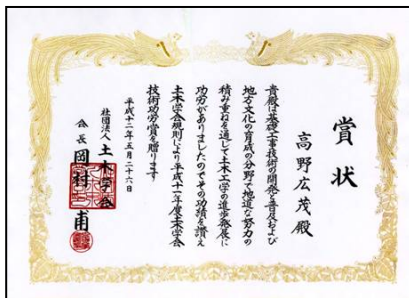 賞状
高野広茂殿
貴殿は基礎工事技術の開発と普及および
地方文化の育成の分野で地道な努力の
積み重ねを通して土木工学の進歩発展に
功労がありましたのでその功績を讃え
土木学会規則により平成十一年度土木学会
技術功労賞を贈ります
平成十二年五月二十六日
社団法人 土木学会
会長 岡村 甫